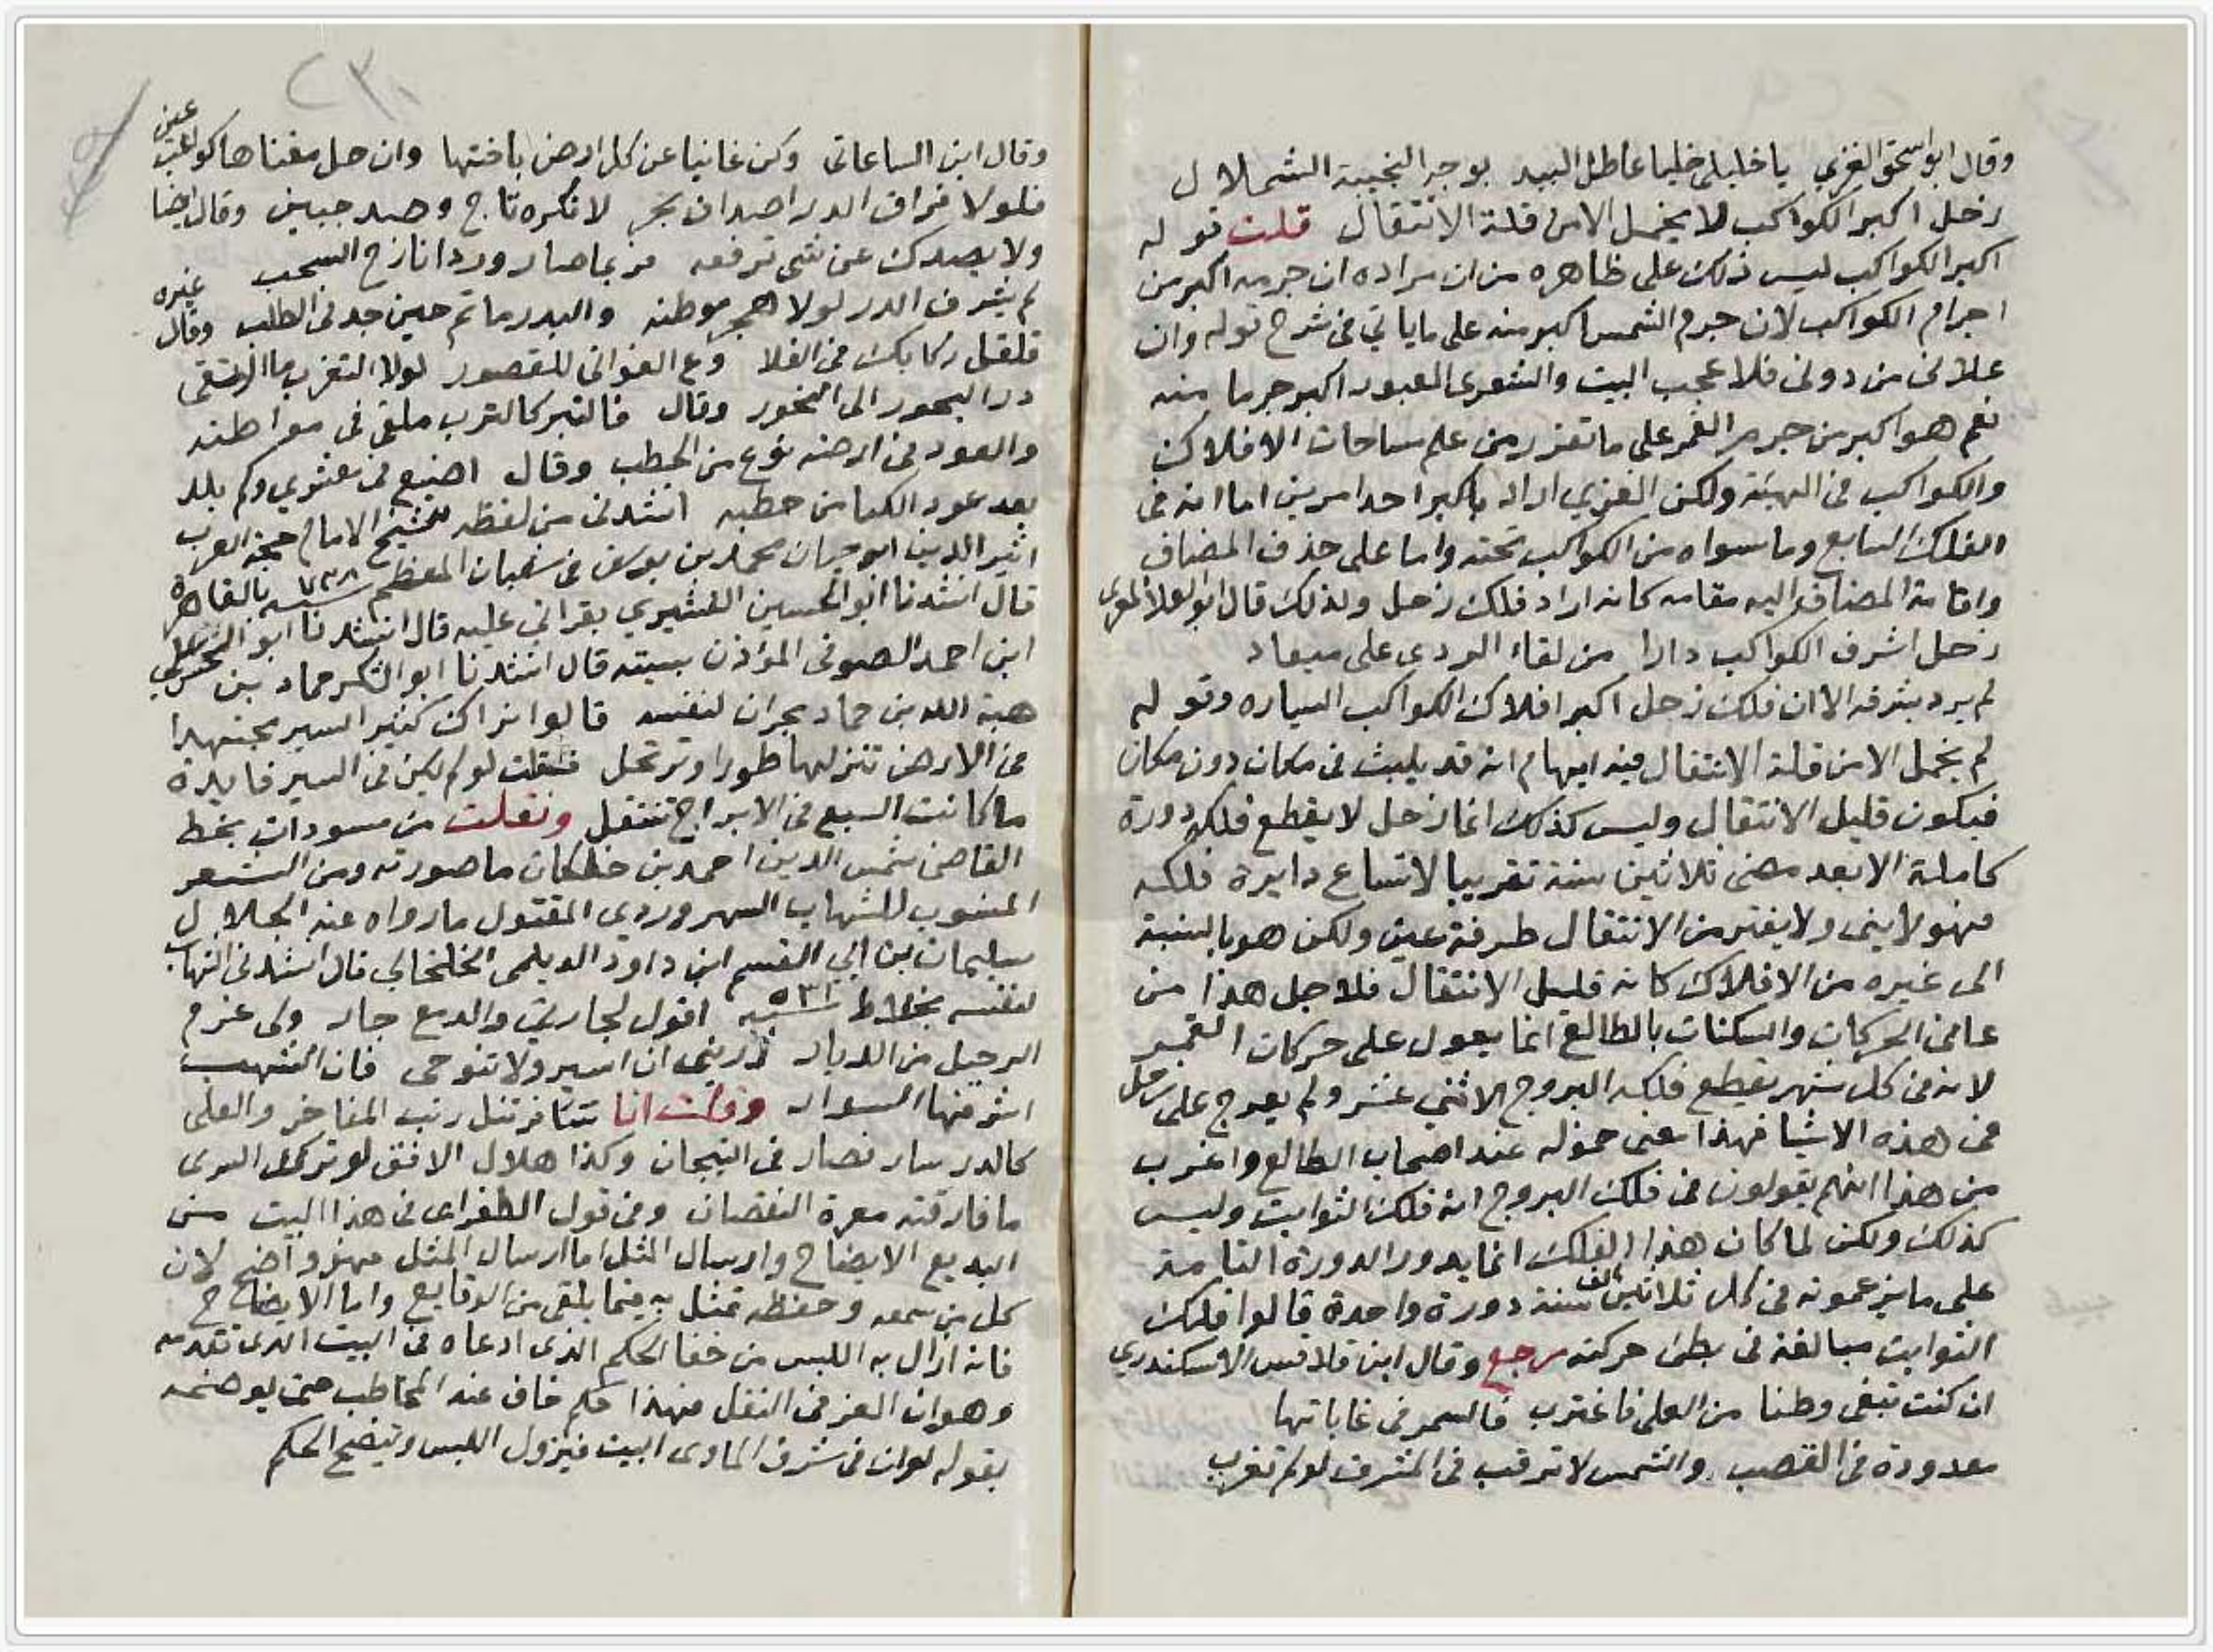 وقال ابو اسحق الغزي يا خليلى خليا عاطل البيد بوجد النجيبة الشملال
زحل اكبر الكواكب لا يخمل الا من قلة الانتقال قلت قوله
اكبر الكواكب ليس ذلك على ظاهره من ان مراده ان جرمه اكبر من
اجرام الكواكب لان جرم الشمس اكبر منه على ما ياتي فى شرح قوله وان
علانى من دونى فلا عجب البيت والشعرى العبور اكبر جرما منه
نعم هو اكبر من جرم القمر على ما تقرر من علم مساحات الافلاك
والكواكب فى الهيئة ولكن الغزي اراد باكبر احد امرين اما انه فى
الفلك السابع وما سواه من الكواكب تحته واما على حذف المضاف
واقامة المضاف اليه مقامه كانه اراد فلك زحل ولذلك قال ابو العلا المعرى
زحل اشرف الكواكب دارا من لقاء الردى على ميعاد
لم يرد بشرفه الا ان فلك زحل اكبر افلاك الكواكب السياره وقوله
لم يخمل الا من قلة الانتقال فيه ايهام انه قد يلبث فى مكان دون مكان
فيكون قليل الانتقال وليس كذلك انما زحل لا يقطع فلكه دورة
كاملة الا بعد مضى ثلاثين سنة تقريبا لاتساع دايرة فلكه
فهو لا ينى ولا يفتر من الانتقال طرفة عين ولكن هو بالنسبة
الى غيره من الافلاك كانه قليل الانتقال فلاجل هذا من
عانى الحركات والسكنات بالطالع انما يعول على حركات القمر
لانه فى كل شهر يقطع فلكه البروج الاثني عشر ولم يعرج على زحل
فى هذه الاشيا فهذا معنى خموله عند اصحاب الطالع واغرب
من هذا انهم يقولون فى فلك البروج انه فلك الثوابت وليس
كذلك ولكن لما كان هذا الفلك انما يدور الدورة التامة
على ما يزعمونه فى كل ثلاثين الف سنة دورة واحدة قالوا فلك
الثوابت مبالغة فى بطئ حركته رجع وقال ابن قلاقس الاسكندري
ان كنت تبغى وطنا من العلى فاغترب فالسمر فى غاباتها
معدودة فى القصب والشمس لا ترقب فى المشرق لو لم تغرب
٢٣٠
وقال ابن الساعاتى وكن غانيا عن كل ارض باختها وان حل مغناها كواعب عين
فلولا فراق الدر اصداف بحر لا نكره تاج وصد جبين وقال ايضا
ولا يصدك عن شى ترفعه فربما صار وردا نازح السحب
لم يشرف الدر لولا هجر موطنه والبدر ما تم حين جد فى الطلب وقال غيره
قلقل ركابك فى الفلا ودع الغوانى للقصور لولا التغرب ما ارتقى
در البحور الى النحور وقال فالتبر كالترب ملقى فى مواطنه
والعود فى ارضه نوع من الحطب وقال اضيع فى معشري وكم بلد
يعد عود الكبا من حطبه انشدنى من لفظه الشيخ الامام حجة العرب
اثير الدين ابو حيان محمد بن يوسف فى شعبان المعظم سنة ٧٣٨ بالقاهرة
قال انشدنا ابو الحسين القشيري بقراتي عليه قال انشدنا ابو
ابن احمد الصوفى المؤذن ببسته قال انشدنا ابو الشكر حماد بن
هبة الله بن حماد بحران لنفسه قالوا نراك كثير السير مجتهدا
فى الارض تنزلها طورا وترتحل فقلت لو لم يكن فى السير فايدة
ما كانت السبع فى الابراج تنتقل ونقلت من مسودات بخط
القاضى شمس الدين احمد بن خلكان ما صورته ومن الشعر
المنسوب للشهاب السهروردى المقتول ما رواه عنه الجلال
سليمان بن ابي القسم ابن داود الديلمى الخلخالي قال انشدنى الشهاب
لنفسه بخلاط سنة اقول لجارتى والدمع جار ولى عزم
الرحيل من الديار ذرينى ان اسير ولا تنوحى فان الشهب
اشرفها السوار وقلت انا سافر تنل رتب المفاخر والعلى
كالدر سار فصار فى التيجان وكذا هلال الافق لو ترك السرى
ما فارقته معرة النقصان وفى قول الطغراى فى هذا البيت من
البديع الايضاح وارسال المثل اما ارسال المثل فهو واضح لان
كل من سمعه وحفظه تمثل به فيما يلقى من الوقايع واما الايضاح
فانه ازال به اللبس من خفا الحكم الذى ادعاه فى البيت الذى تقدمه
وهو ان العز فى النقل فهذا حكم خاف عند المخاطب حتى يوضحه
بقوله لو ان فى شرف الماوى البيت فيزول اللبس ويتضح الحكم